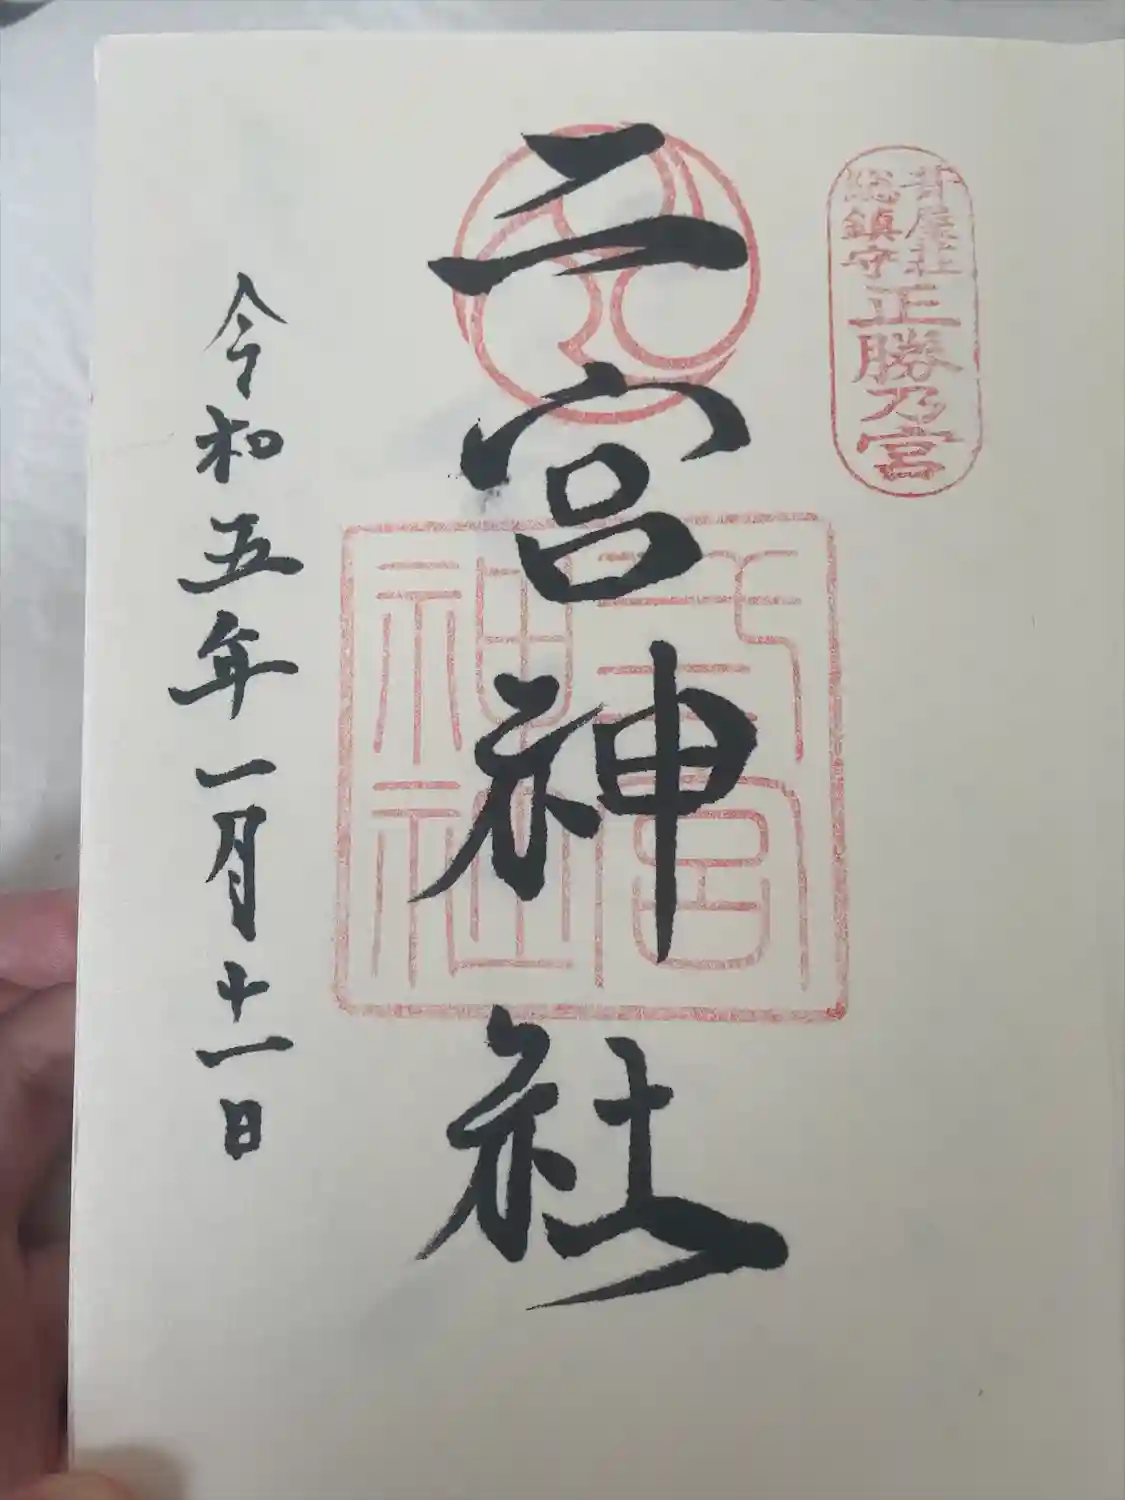 葺屋荘
総鎮守
正勝乃宮
二宮神社
弍宮
神社
令和五年一月十一日